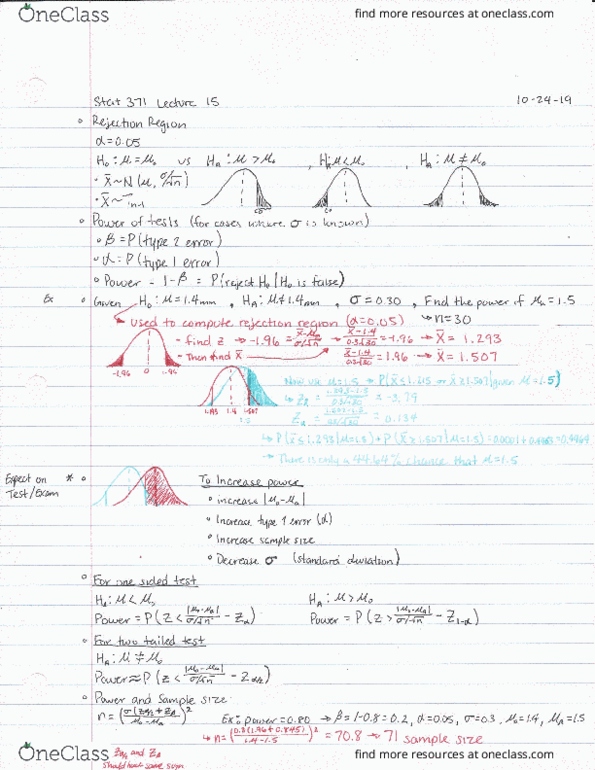 OneClass
find more resources at oneclass.com
Stat 371 Lecture 15 10-24-19
Rejection Region
α=0.05
H₀: μ=μ₀ vs Hₐ: μ>μ₀ , Hₐ: μ<μ₀ , Hₐ: μ≠μ₀
X̄~N(μ, σ/√n)
X̄~
Power of tests (for cases where σ is known)
β = P(type 2 error)
α = P(type 1 error)
Power = 1-β = P(reject H₀ | H₀ is false)
Ex Given H₀: μ=1.4mm , Hₐ: μ≠1.4mm , σ=0.30 , Find the power if μₐ=1.5
→ n=30
used to compute rejection region (α=0.05)
- find z → -1.96 = (x̄-μ₀)/(σ/√n) = (x̄-1.4)/(0.3/√30) = -1.96 → x̄ = 1.293
- Then find x̄ (x̄-1.4)/(0.3/√30) = 1.96 → x̄ = 1.507
-1.96 0 1.96
Now use μ=1.5 → P(x̄≤ or x̄≥1.507 | given μ=1.5)
1.293 1.4 1.507
1.5
= -3.79
= 0.134
→ P(x̄≤1.293|μ=1.5) + P(x̄≥1.507|μ=1.5) = 0.0001 + = 0.4464
→ There is only a 44.64% chance that μ=1.5
Expect on * To Increase power
Test/Exam
increase |μ₀-μₐ|
Increase type 1 error (α)
Increase sample size
Decrease σ (standard deviation)
For one sided test
Hₐ: μ<μ₀ Hₐ: μ>μ₀
Power = P(Z < |μ₀-μₐ|/(σ/√n) - Zα) Power = P(Z > |μ₀-μₐ|/(σ/√n) - Z₁₋α)
For two tailed test
Hₐ: μ≠μ₀
Power≈P(Z < |μ₀-μₐ|/(σ/√n) - Zα/₂)
Power and Sample size
n = (σ(Zα/₂+Zβ)/(μ₀-μₐ))² Ex: power=0.80 → β=1-0.8=0.2, α=0.05, σ=0.3, μ₀=1.4, μₐ=1.5
→ n = (0.3(1.96+0.845)/(1.4-1.5))² = 70.8 → 71 sample size
Zα/₂ and Zβ
should have same sign
OneClass
find more resources at oneclass.com